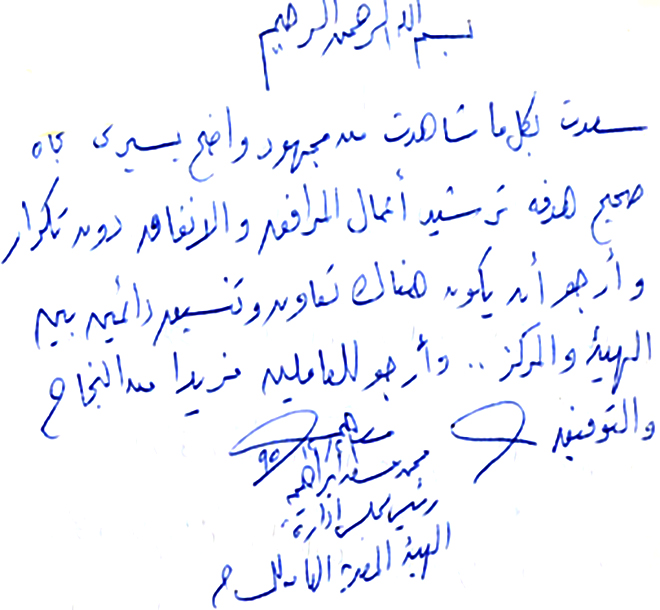 بسم الله الرحمن الرحيم
سعدت بكل ما شاهدت من مجهود واضح يسير فى تجاه
صحيح هدفه ترشيد أعمال المرافق والانفاق دون تكرار
وأرجو أن يكون هناك تعاون وتنسيق دائمين بين
الهيئة والمركز .. وأرجو للعاملين مزيدا من النجاح
والتوفيق
محمد سعد ابراهيم
رئيس مجلس إدارة
الهيئة المصرية العامة للمساحة